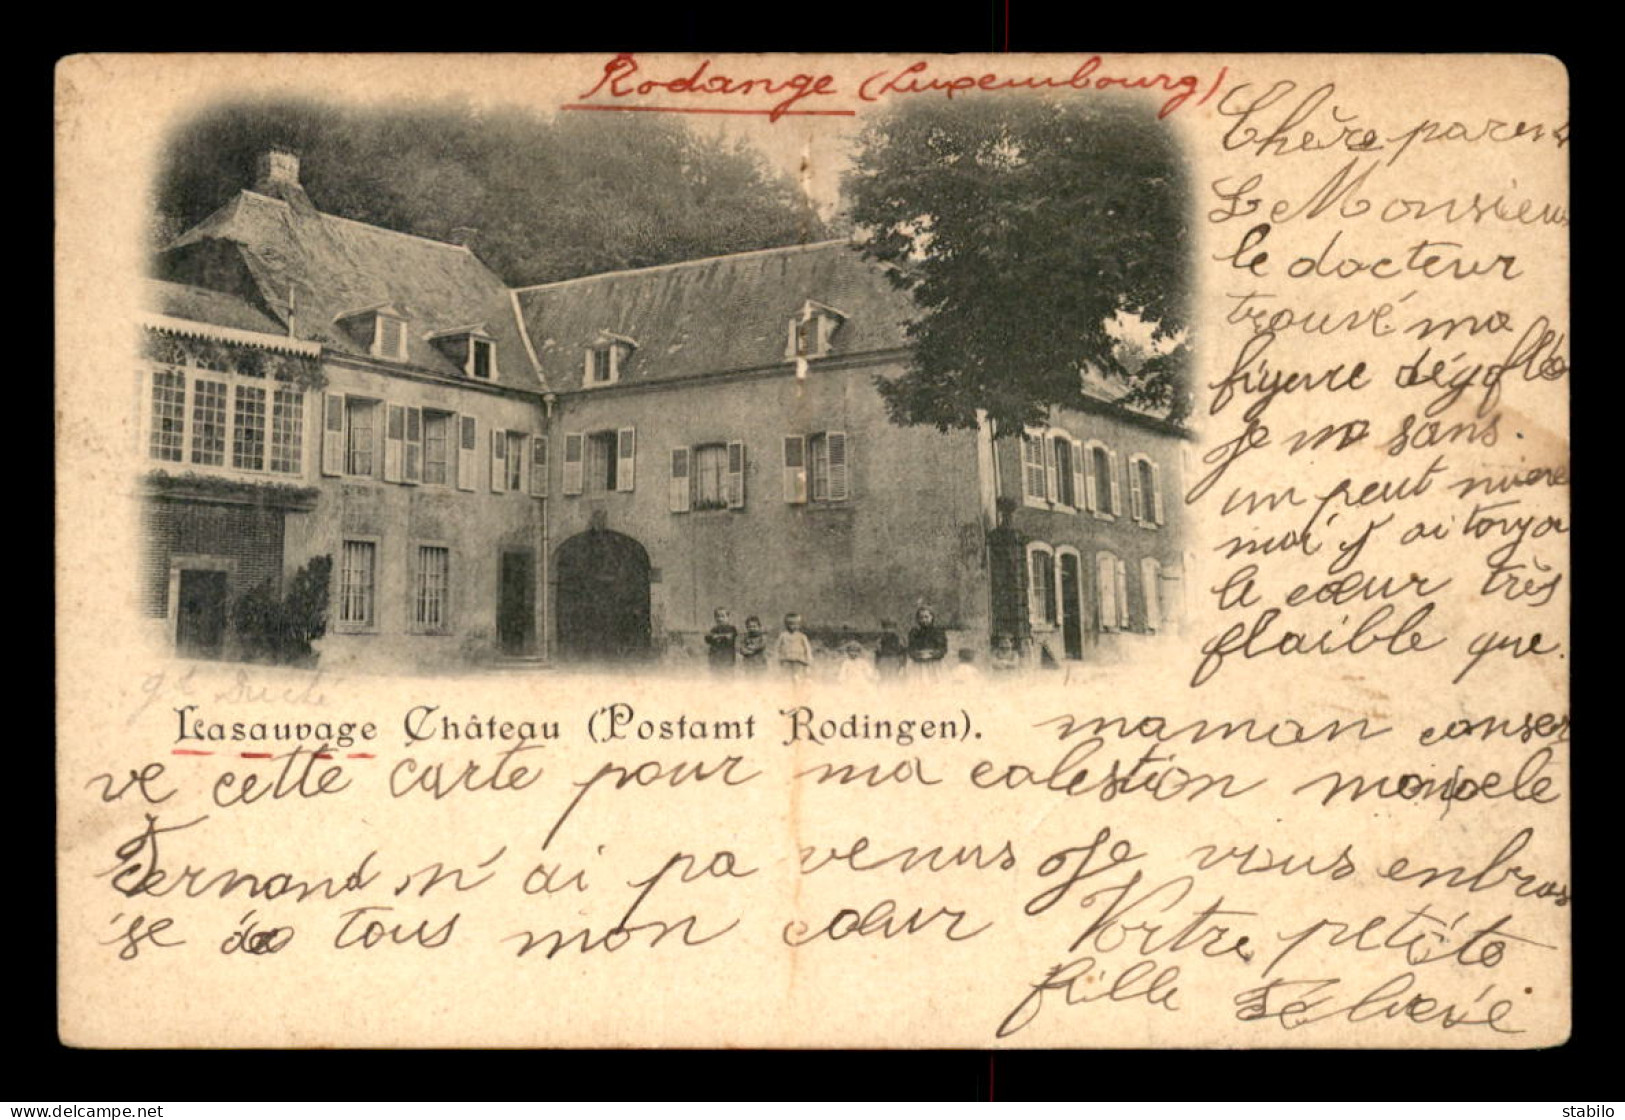 Rodange (Luxembourg)
Chère paren
Le Monsieur
le docteur
trouvé ma
figure dégoflé
je me sans
un peut
moi j ai toujo
le cœur très
flaible que
gd Duché
Lasauvage Château (Postamt Rodingen).
maman conser
ve cette carte pour ma colestion
Fernand n'ai pa venus Je vous enbras
se de tous mon cœur Vortre petite
fille
stabilo